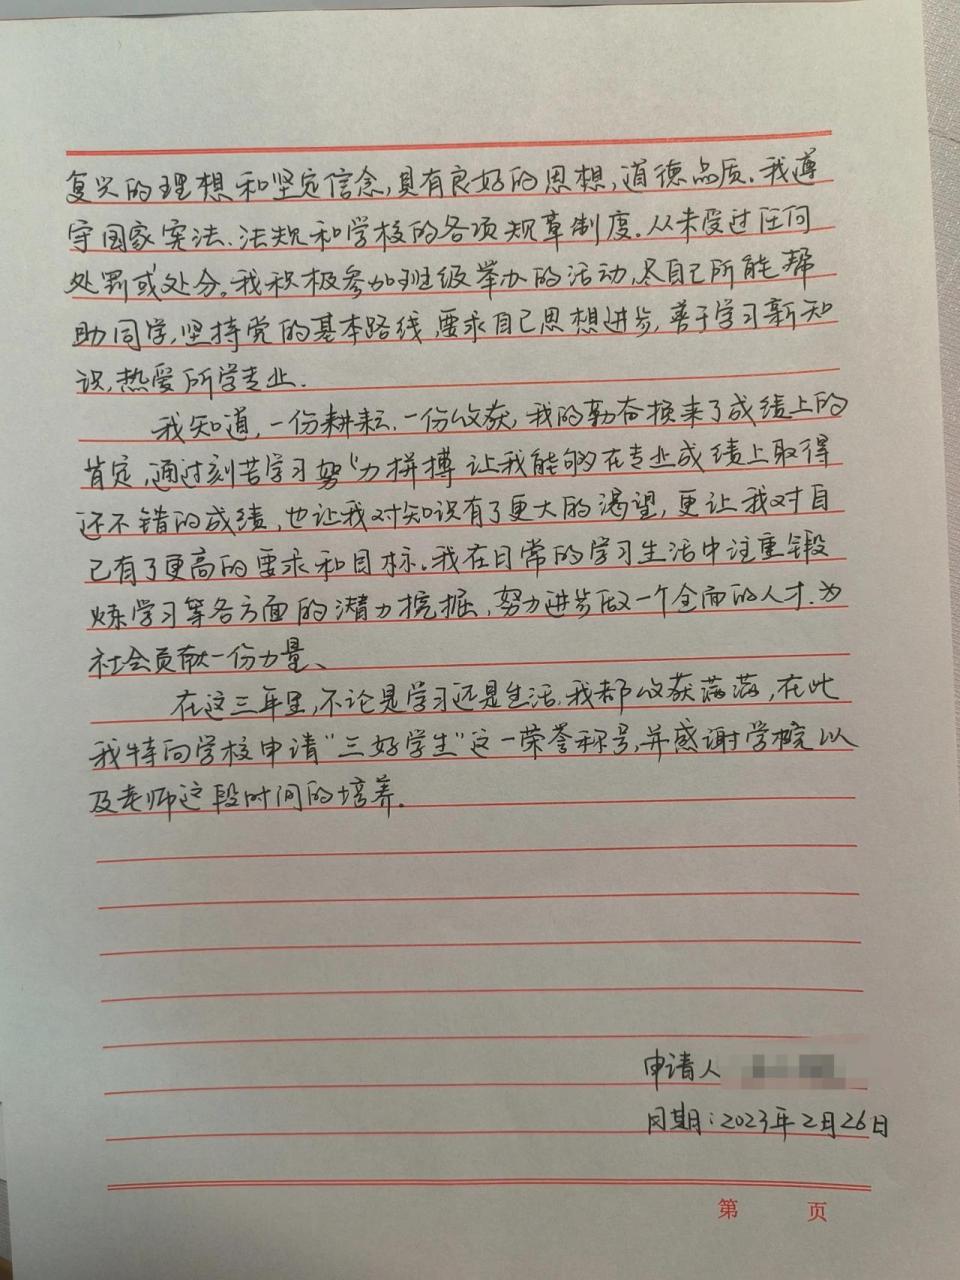 复兴的理想和坚定信念,具有良好的思想,道德品质.我遵
守国家宪法、法规和学校的各项规章制度.从未受过任何
处罚或处分。我积极参加班级举办的活动,尽自己所能帮
助同学,坚持党的基本路线,要求自己思想进步,善于学习新知
识,热爱所学专业.
我知道,一份耕耘,一份收获,我的勤奋换来了成绩上的
肯定,通过刻苦学习努力拼搏让我能够在专业成绩上取得
还不错的成绩,也让我对知识有了更大的渴望,更让我对自
己有了更高的要求和目标.我在日常的学习生活中注重锻
炼学习等各方面的潜力挖掘,努力进步做一个全面的人才.为
社会贡献一份力量、
在这三年里,不论是学习还是生活.我都收获满满,在此
我特向学校申请"三好学生"这一荣誉称号,并感谢学院以
及老师这段时间的培养.
申请人
日期:2023年2月26日
第 页